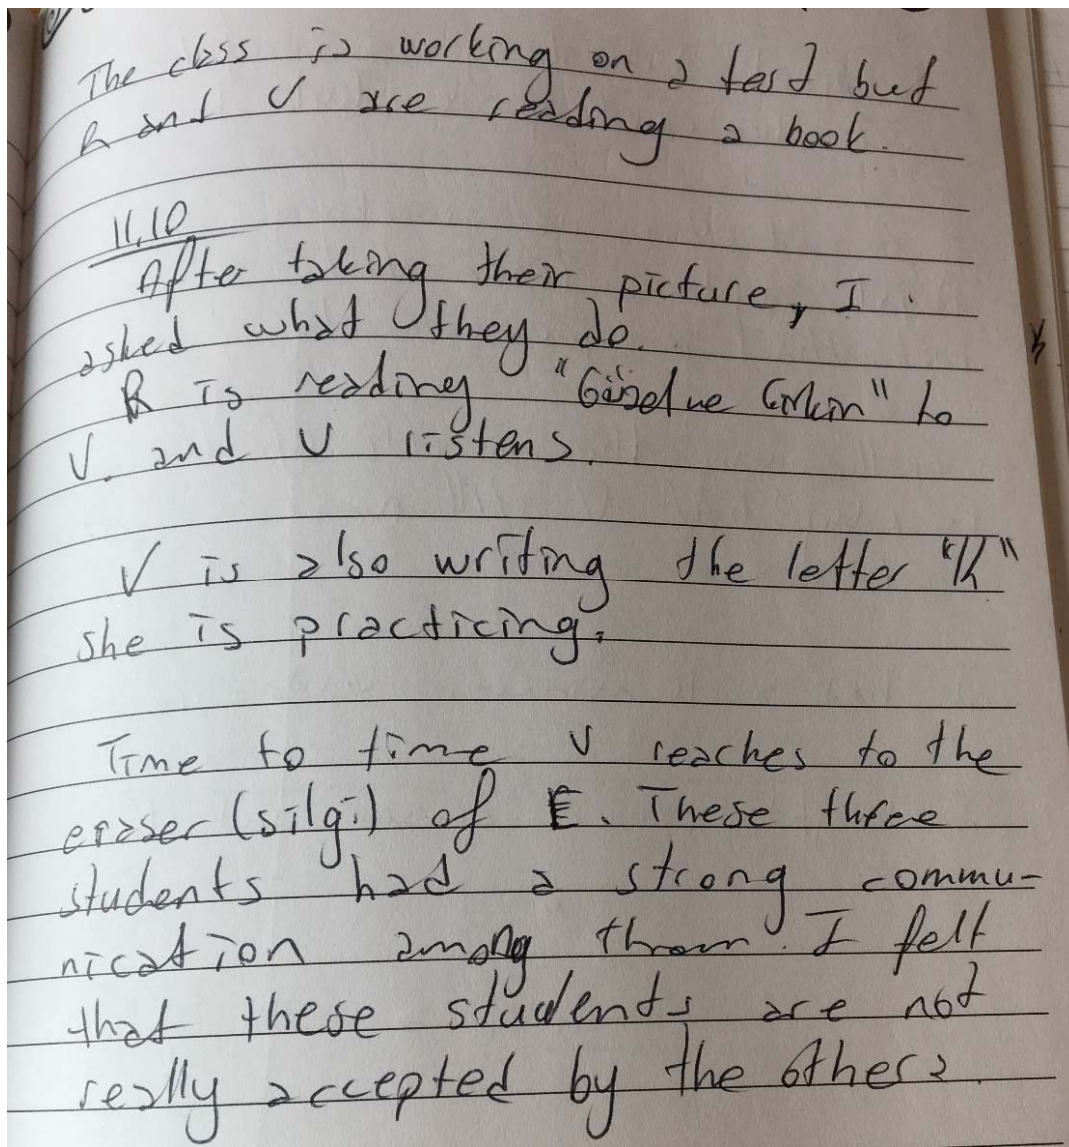 The class is working on a test but
R and V are reading a book.
11.10
After taking their picture, I
asked what they do.
R is reading "Güzel ve Çirkin" to
V. and V listens.
V is also writing the letter "k"
she is practicing.
Time to time V reaches to the
eraser (silgi) of E. These three
students had a strong commu-
nication among them. I felt
that these students are not
really accepted by the others.